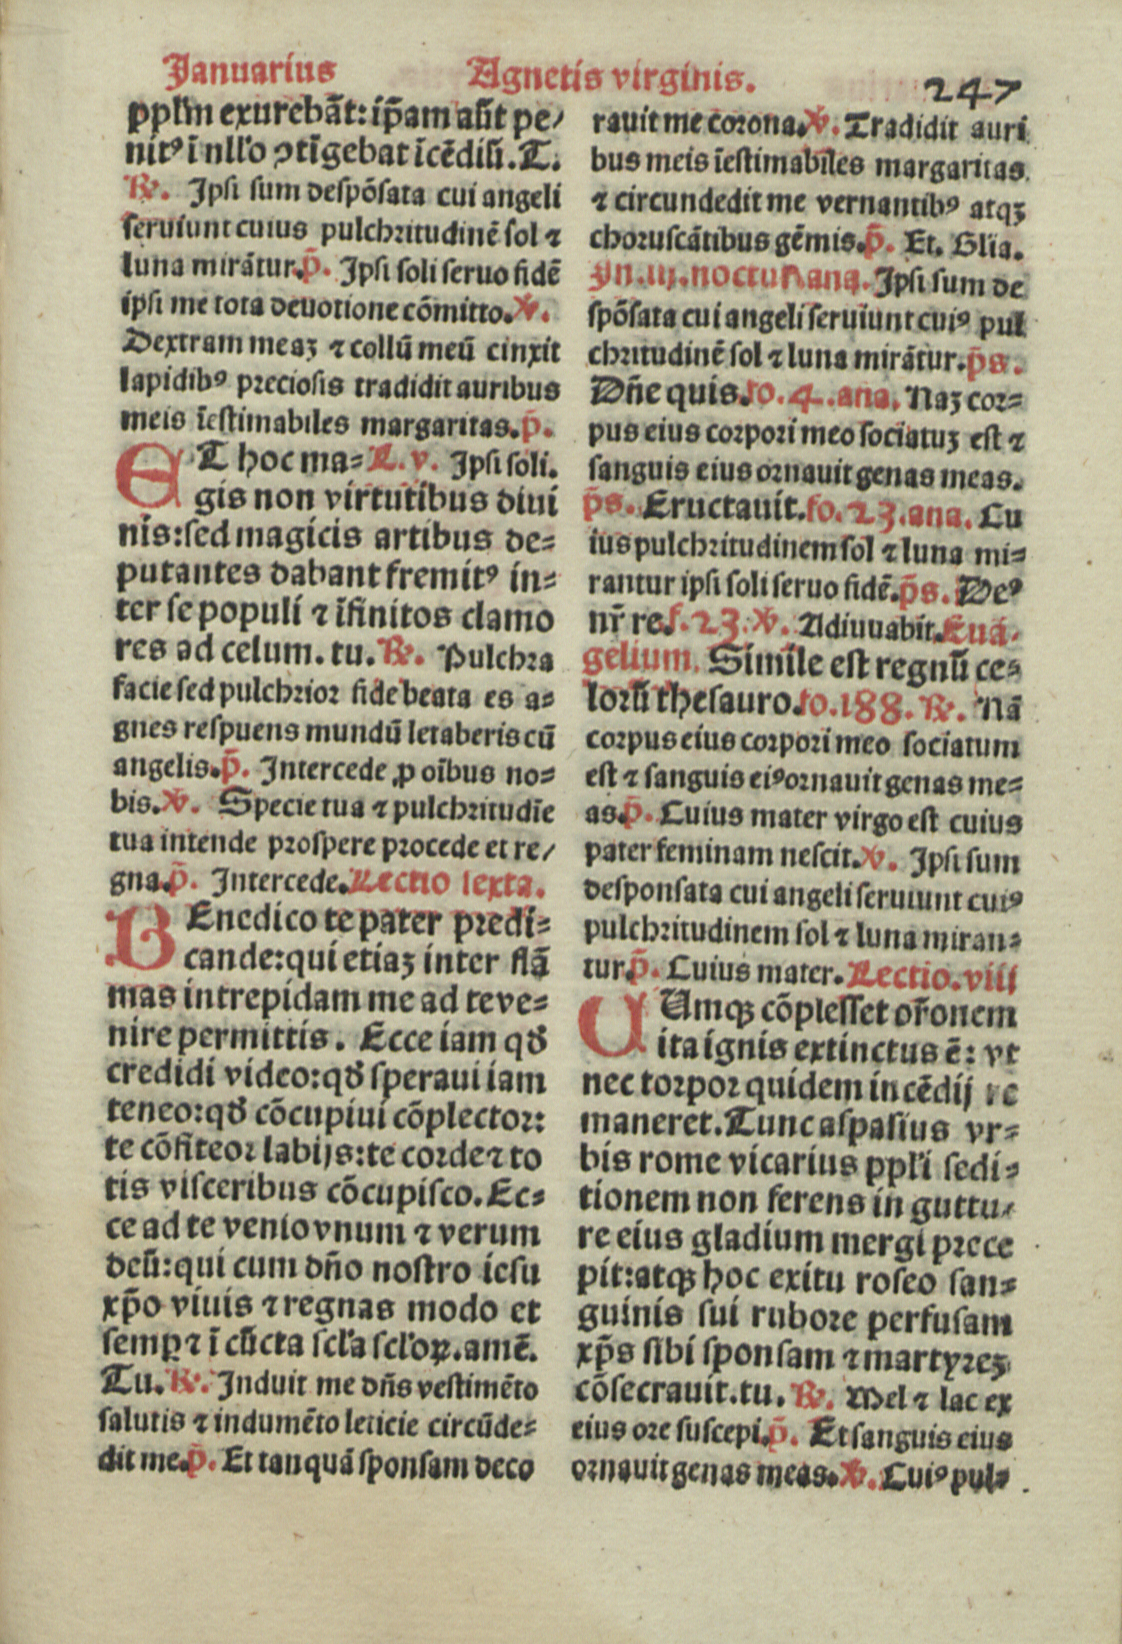 Januarius
Agnetis virginis.
247
pplm̄ exurebāt: ip̄am aūt pe/
nitꝰ ī nll'o ꝯtīgebat īcēdiū. T.
℟. Ipsi sum despōsata cui angeli
seruiunt cuius pulchritudinē sol ⁊
luna mirātur. p̄. Ipsi soli seruo fidē
ipsi me tota deuotione cōmitto. ℣.
Dextram meaꝫ ⁊ collū meū cinxit
lapidibꝰ preciosis tradidit auribus
meis īestimabiles margaritas. p̄.
ET hoc ma= L. v. Ipsi soli.
gis non virtutibus diui
nis: sed magicis artibus de=
putantes dabant fremitꝰ in=
ter se populi ⁊ īfinitos clamo
res ad celum. tu. ℟. Pulchra
facie sed pulchrior fide beata es a=
gnes respuens mundū letaberis cū
angelis. p̄. Intercede ꝓ oībus no=
bis. ℣. Specie tua ⁊ pulchritudīe
tua intende prospere procede et re/
gna. p̄. Intercede. Lectio sexta.
BEnedico te pater predi=
cande: qui etiaꝫ inter flā
mas intrepidam me ad te ve=
nire permittis. Ecce iam qđ
credidi video: qđ speraui iam
teneo: qđ cōcupiui cōplector:
te cōfiteor labijs: te corde ⁊ to
tis visceribus cōcupisco. Ec=
ce ad te venio vnum ⁊ verum
deū: qui cum dño nostro iesu
xp̄o viuis ⁊ regnas modo et
semꝑ ⁊ ī cūcta scl'a scl'oꝝ. amē.
Tu. ℟. Induit me dn̄s vestimēto
salutis ⁊ indumēto leticie circūde=
dit me. p̄. Et tanquā sponsam deco
rauit me corona. ℣. Tradidit auri
bus meis īestimabiles margaritas.
⁊ circundedit me vernantibꝰ atqꝫ
choruscātibus gēmis. p̄. Et. Glia.
Yn. iij. nocturn ana. Ipsi sum de
spōsata cui angeli seruiunt cuiꝰ pul
chritudinē sol ⁊ luna mirātur. p̄s.
Dn̄e quis. fo. 4. ana. Naꝫ cor=
pus eius corpori meo sociatuꝫ est ⁊
sanguis eius ornauit genas meas.
p̄s. Eructauit. fo. 23. ana. Cu
ius pulchritudinem sol ⁊ luna mi=
rantur ipsi soli seruo fidē. p̄s. Deꝰ
nr̄ re. f. 23. ℣. Adiuuabit. Euā
gelium. Simile est regnū ce=
lorū thesauro. fo. 188. ℟. Nā
corpus eius corpori meo sociatum
est ⁊ sanguis eiꝰ ornauit genas me=
as. p̄. Cuius mater virgo est cuius
pater feminam nescit. ℣. Ipsi sum
desponsata cui angeli seruiunt cuiꝰ
pulchritudinem sol ⁊ luna miran=
tur. p̄. Cuius mater. Lectio. viij
CUmqꝫ cōplesset or̄onem
ita ignis extinctus ē: vt
nec torpor quidem incēdij re
maneret. Tunc aspasius vr=
bis rome vicarius ppl'i sedi=
tionem non ferens in guttu/
re eius gladium mergi prece
pit: atqꝫ hoc exitu roseo san=
guinis sui rubore perfusam
xp̄s sibi sponsam ⁊ martyreꝫ
cōsecrauit. tu. ℟. Mel ⁊ lac ex
eius ore suscepi. p̄. Et sanguis eius
ornauit genas meas. ℣. Cuiꝰ pul=